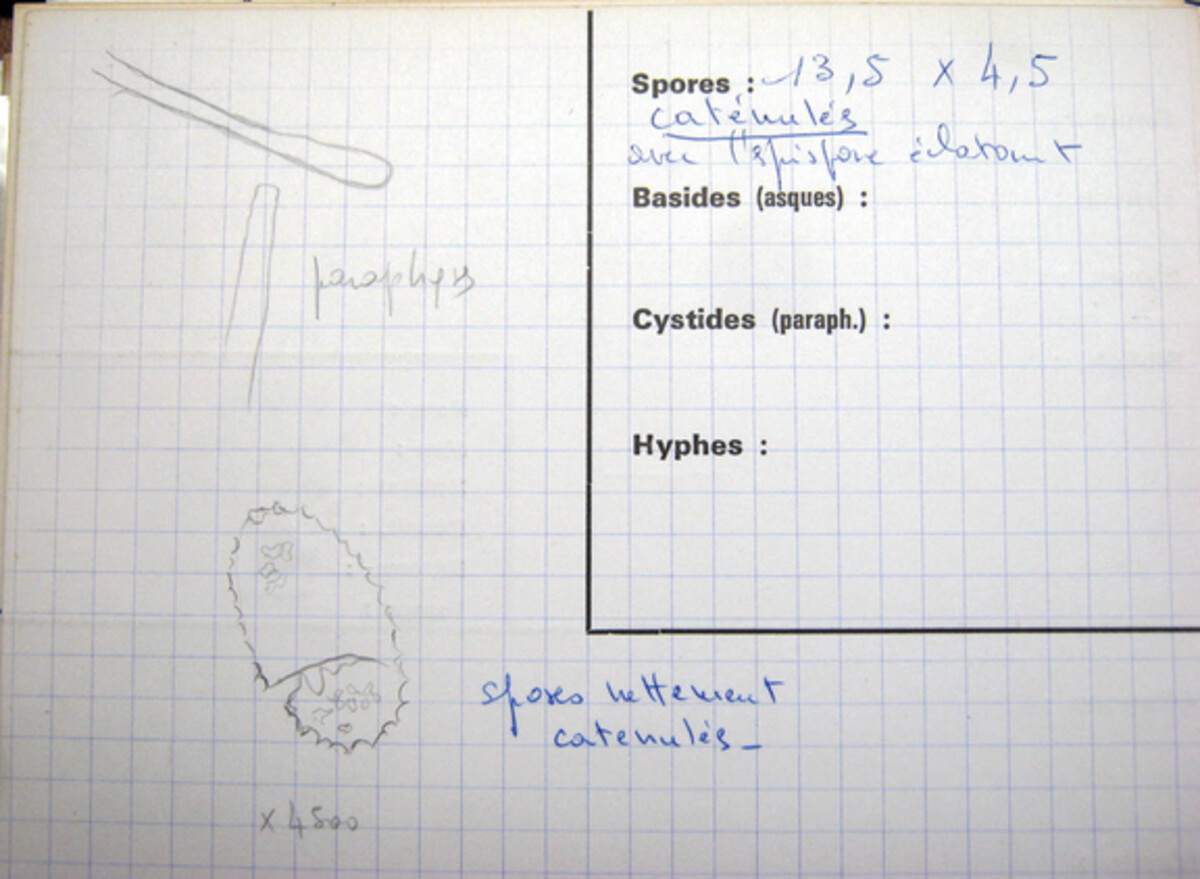 Spores : 13,5 x 4,5
caténulés
avec l'épispore éclatant
Basides (asques) :
Cystides (paraph.) :
Hyphes :
paraphyses
spores nettement
catenulés_
x 4500